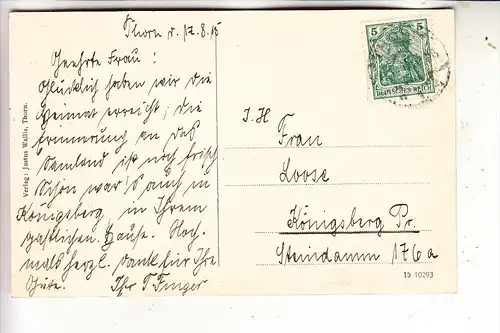 Thorn d. 17.8.15
Geehrte Frau!
Glücklich haben wir die
Heimat erreicht; die
Erinnerung an das
Samland ist noch frisch
Schön war's auch in
Königsberg, in Ihrem
gastlichen Hause. Noch
mals herzl. Dank für Ihre
Güte. Ihr T Finger
Verlag: Justus Wallis, Thorn.
5 5
DEUTSCHES REICH
I. H
Frau
Loose
Königsberg Pr.
Steindamm 176a
15 10293